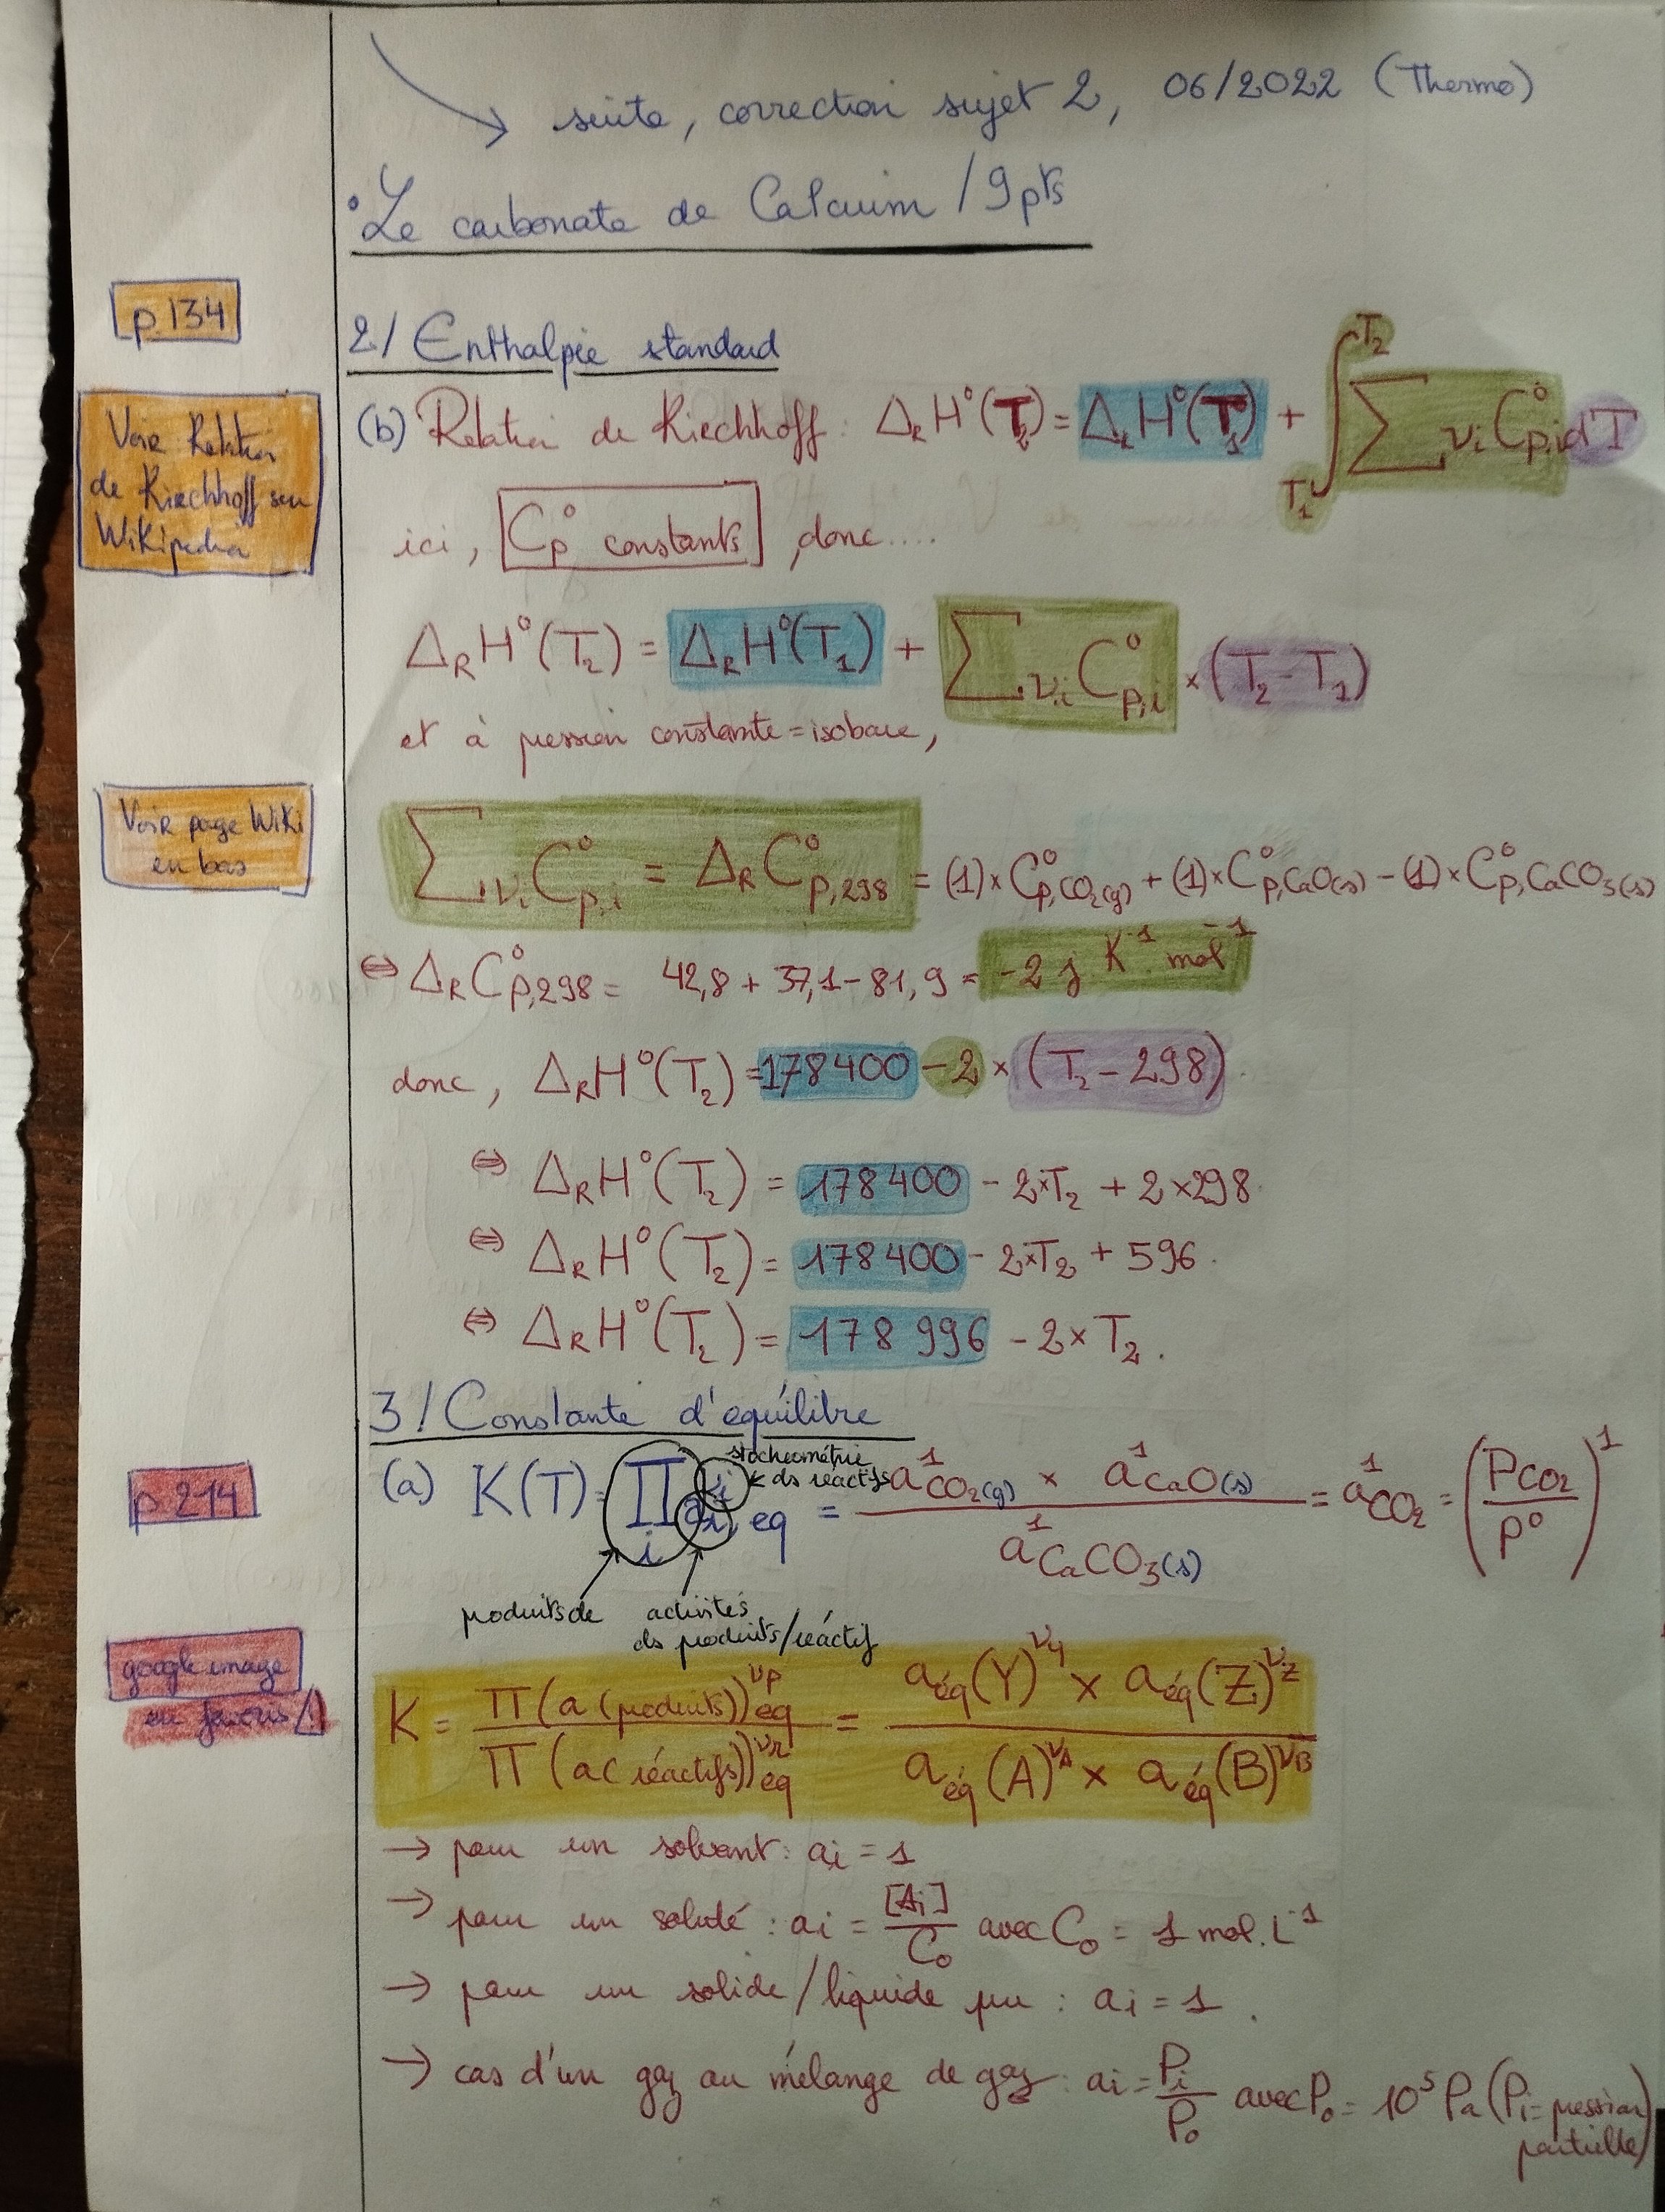 suite, correction sujet 2, 06/2022 (Thermo)
• Le carbonate de Calcium /9pts
p.134
2/ Enthalpie standard
Voir Relation
de Kirchhoff sur
WiKipedia
(b) Relation de Kirchhoff : Δ_R H°(T₂) = Δ_R H°(T₁) + ∫_T₁^T₂ Σ νᵢ C°p,i dT
ici, Cp° constants, donc....
Δ_R H°(T₂) = Δ_R H°(T₁) + Σ νᵢ C°p,i × (T₂ - T₁)
et à pression constante = isobare,
Voir page WiKi
en bas
Σ νᵢ C°p,i = Δ_R C°p,298 = (1) × C°p,CO₂(g) + (1) × C°p,CaO(s) - (1) × C°p,CaCO₃(s)
⇔ Δ_R C°p,298 = 42,8 + 37,1 - 81,9 = -2 j K⁻¹. mol⁻¹
donc, Δ_R H°(T₂) = 178400 - 2 × (T₂ - 298).
⇔ Δ_R H°(T₂) = 178400 - 2×T₂ + 2×298
⇔ Δ_R H°(T₂) = 178400 - 2×T₂ + 596.
⇔ Δ_R H°(T₂) = 178 996 - 2×T₂.
3/ Constante d'équilibre
stocheométrie
ds réactifs
p 214
(a) K(T) = ∏ᵢ aᵢ^νi, eq = a¹CO₂(g) × a¹CaO(s) / a¹CaCO₃(s) = a¹CO₂ = (PCO₂/P°)¹
produits de
activités
ds produits/réactif
google image
en favoris ⚠
K = ∏(a(produits))^νp éq / ∏(a(réactifs))^νr éq = aéq(Y)^νy × aéq(Z)^νz / aéq(A)^νA × aéq(B)^νB
→ pour un solvant : ai = 1
→ pour un soluté : ai = [Ai]/C₀ avec C₀ = 1 mol.L⁻¹
→ pour un solide/liquide pur : ai = 1.
→ cas d'un gaz au mélange de gaz : ai = Pi/P₀ avec P₀ = 10⁵ Pa (Pi = pression
partielle)